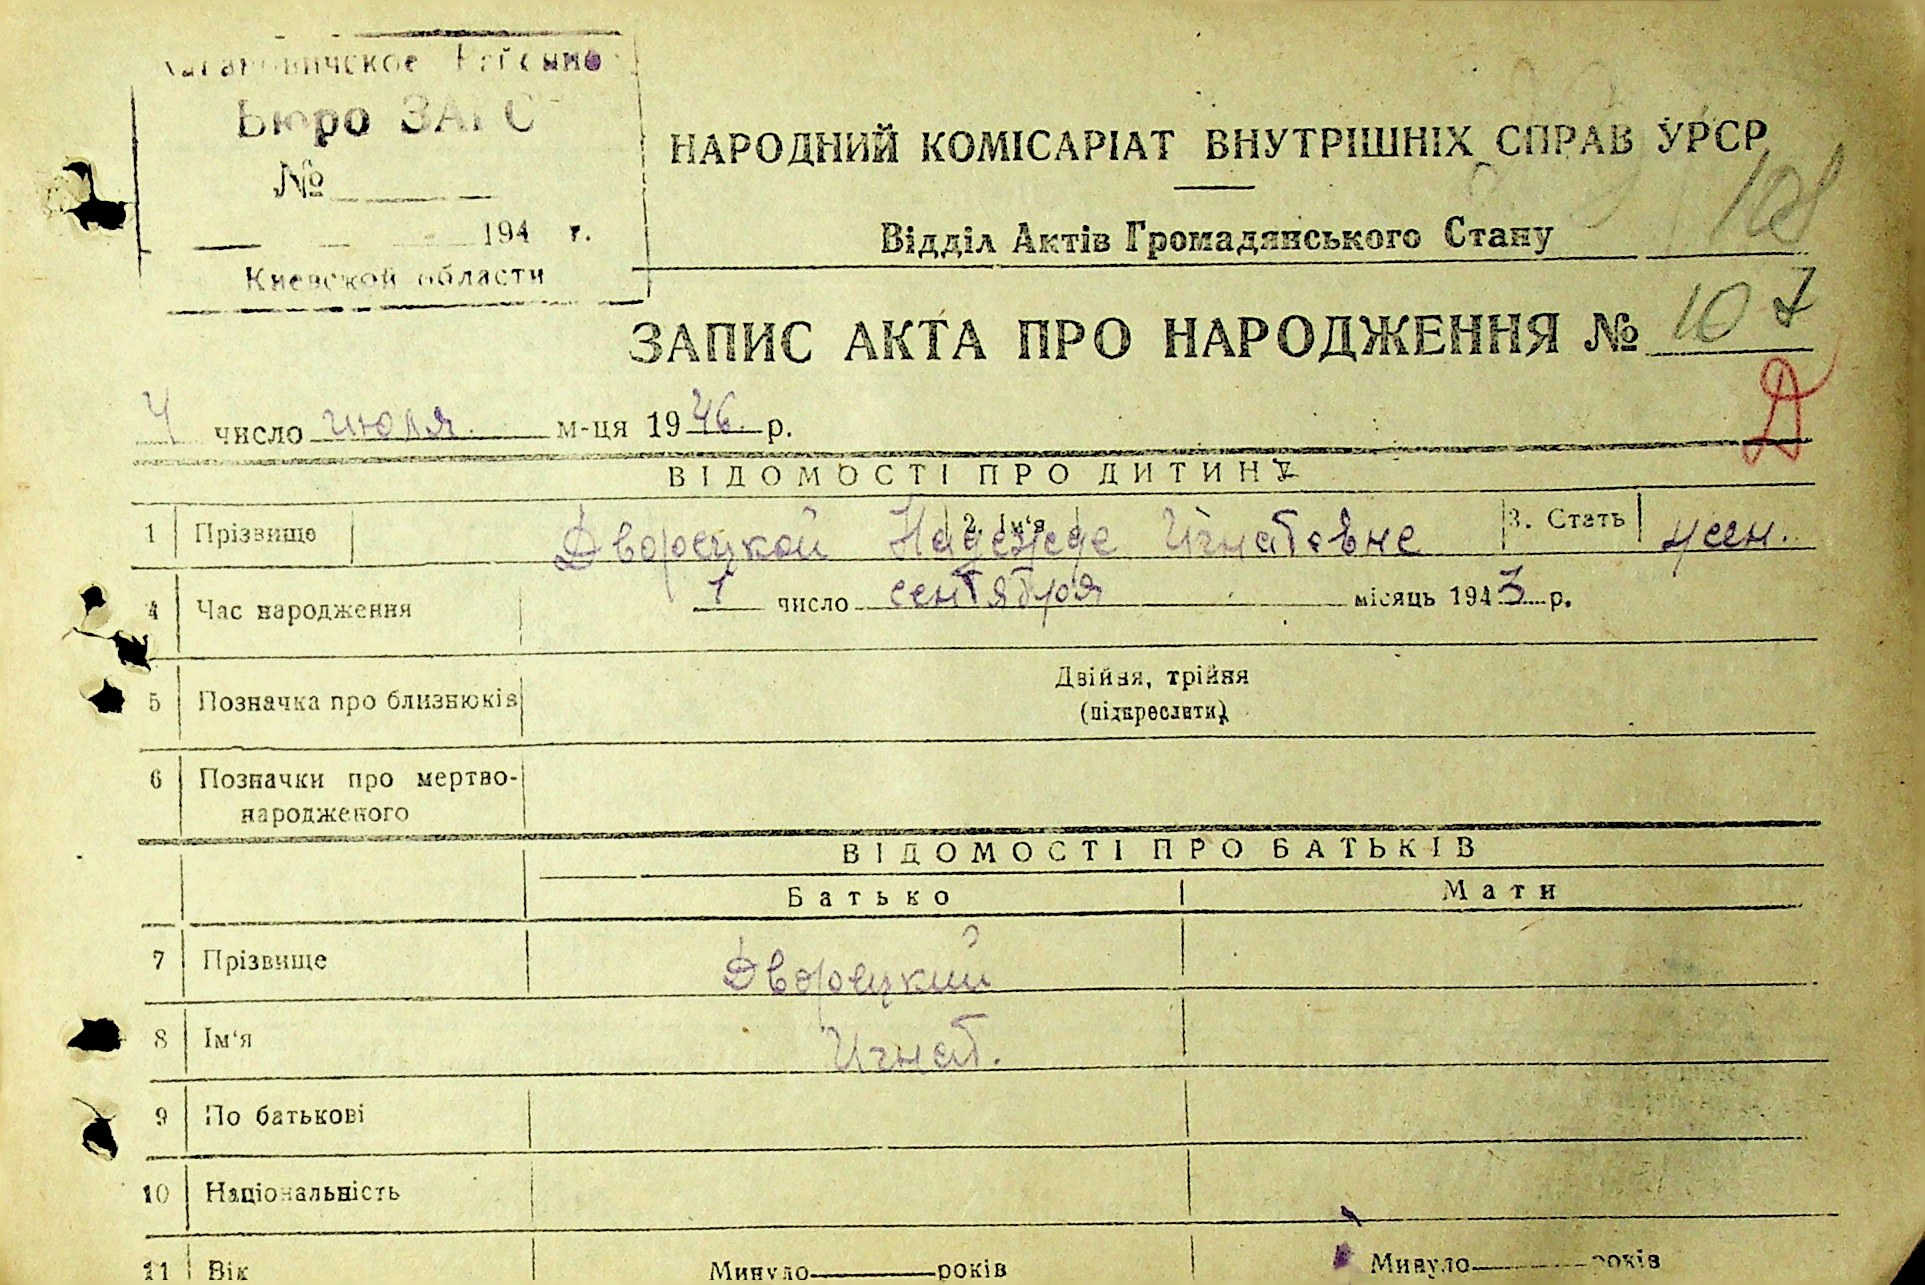 Кагановичское Районно
Бюро ЗАГС
№
194 г.
Киевской области
НАРОДНИЙ КОМІСАРІАТ ВНУТРІШНІХ СПРАВ УРСР
108
Відділ Актів Громадянського Стану
ЗАПИС АКТА ПРО НАРОДЖЕННЯ № 107
Д
4 число июля м-ця 1946 р.
ВІДОМОСТІ ПРО ДИТИНУ
1 Прізвище Дворецкой 2. Ім‘я Надежде Игнатовне 3. Стать жен.
4 Час народження 1 число сентября місяць 1943 р.
5 Позначка про близнюків Двійня, трійня
(підкреслити)
6 Позначки про мертво-
народженого
ВІДОМОСТІ ПРО БАТЬКІВ
Батько Мати
7 Прізвище Дворецкий
8 Ім‘я Игнат.
9 По батькові
10 Національність
11 Вік Минуло років Минуло років